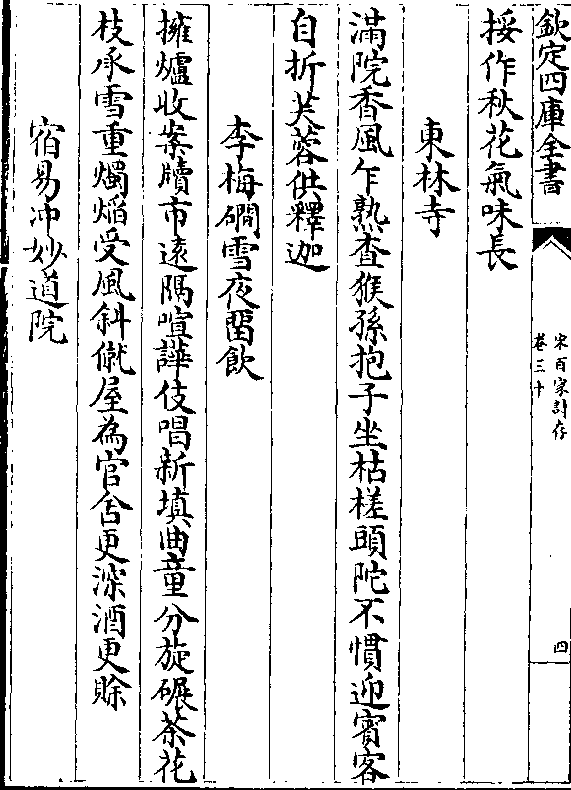 欽定四庫全書
宋百家詩存
卷三十
四
挼作秋花氣味長
東林寺
滿院香風乍熟查猴孫抱子坐枯槎頭陀不慣迎賓客
自折芙蓉供釋迦
李梅磵雪夜留飲
擁爐收案牘市遠隔喧譁伎唱新填曲童分旋碾茶花
枝承雪重燭焰受風斜僦屋為官舍更深酒更賖
宿易冲妙道院